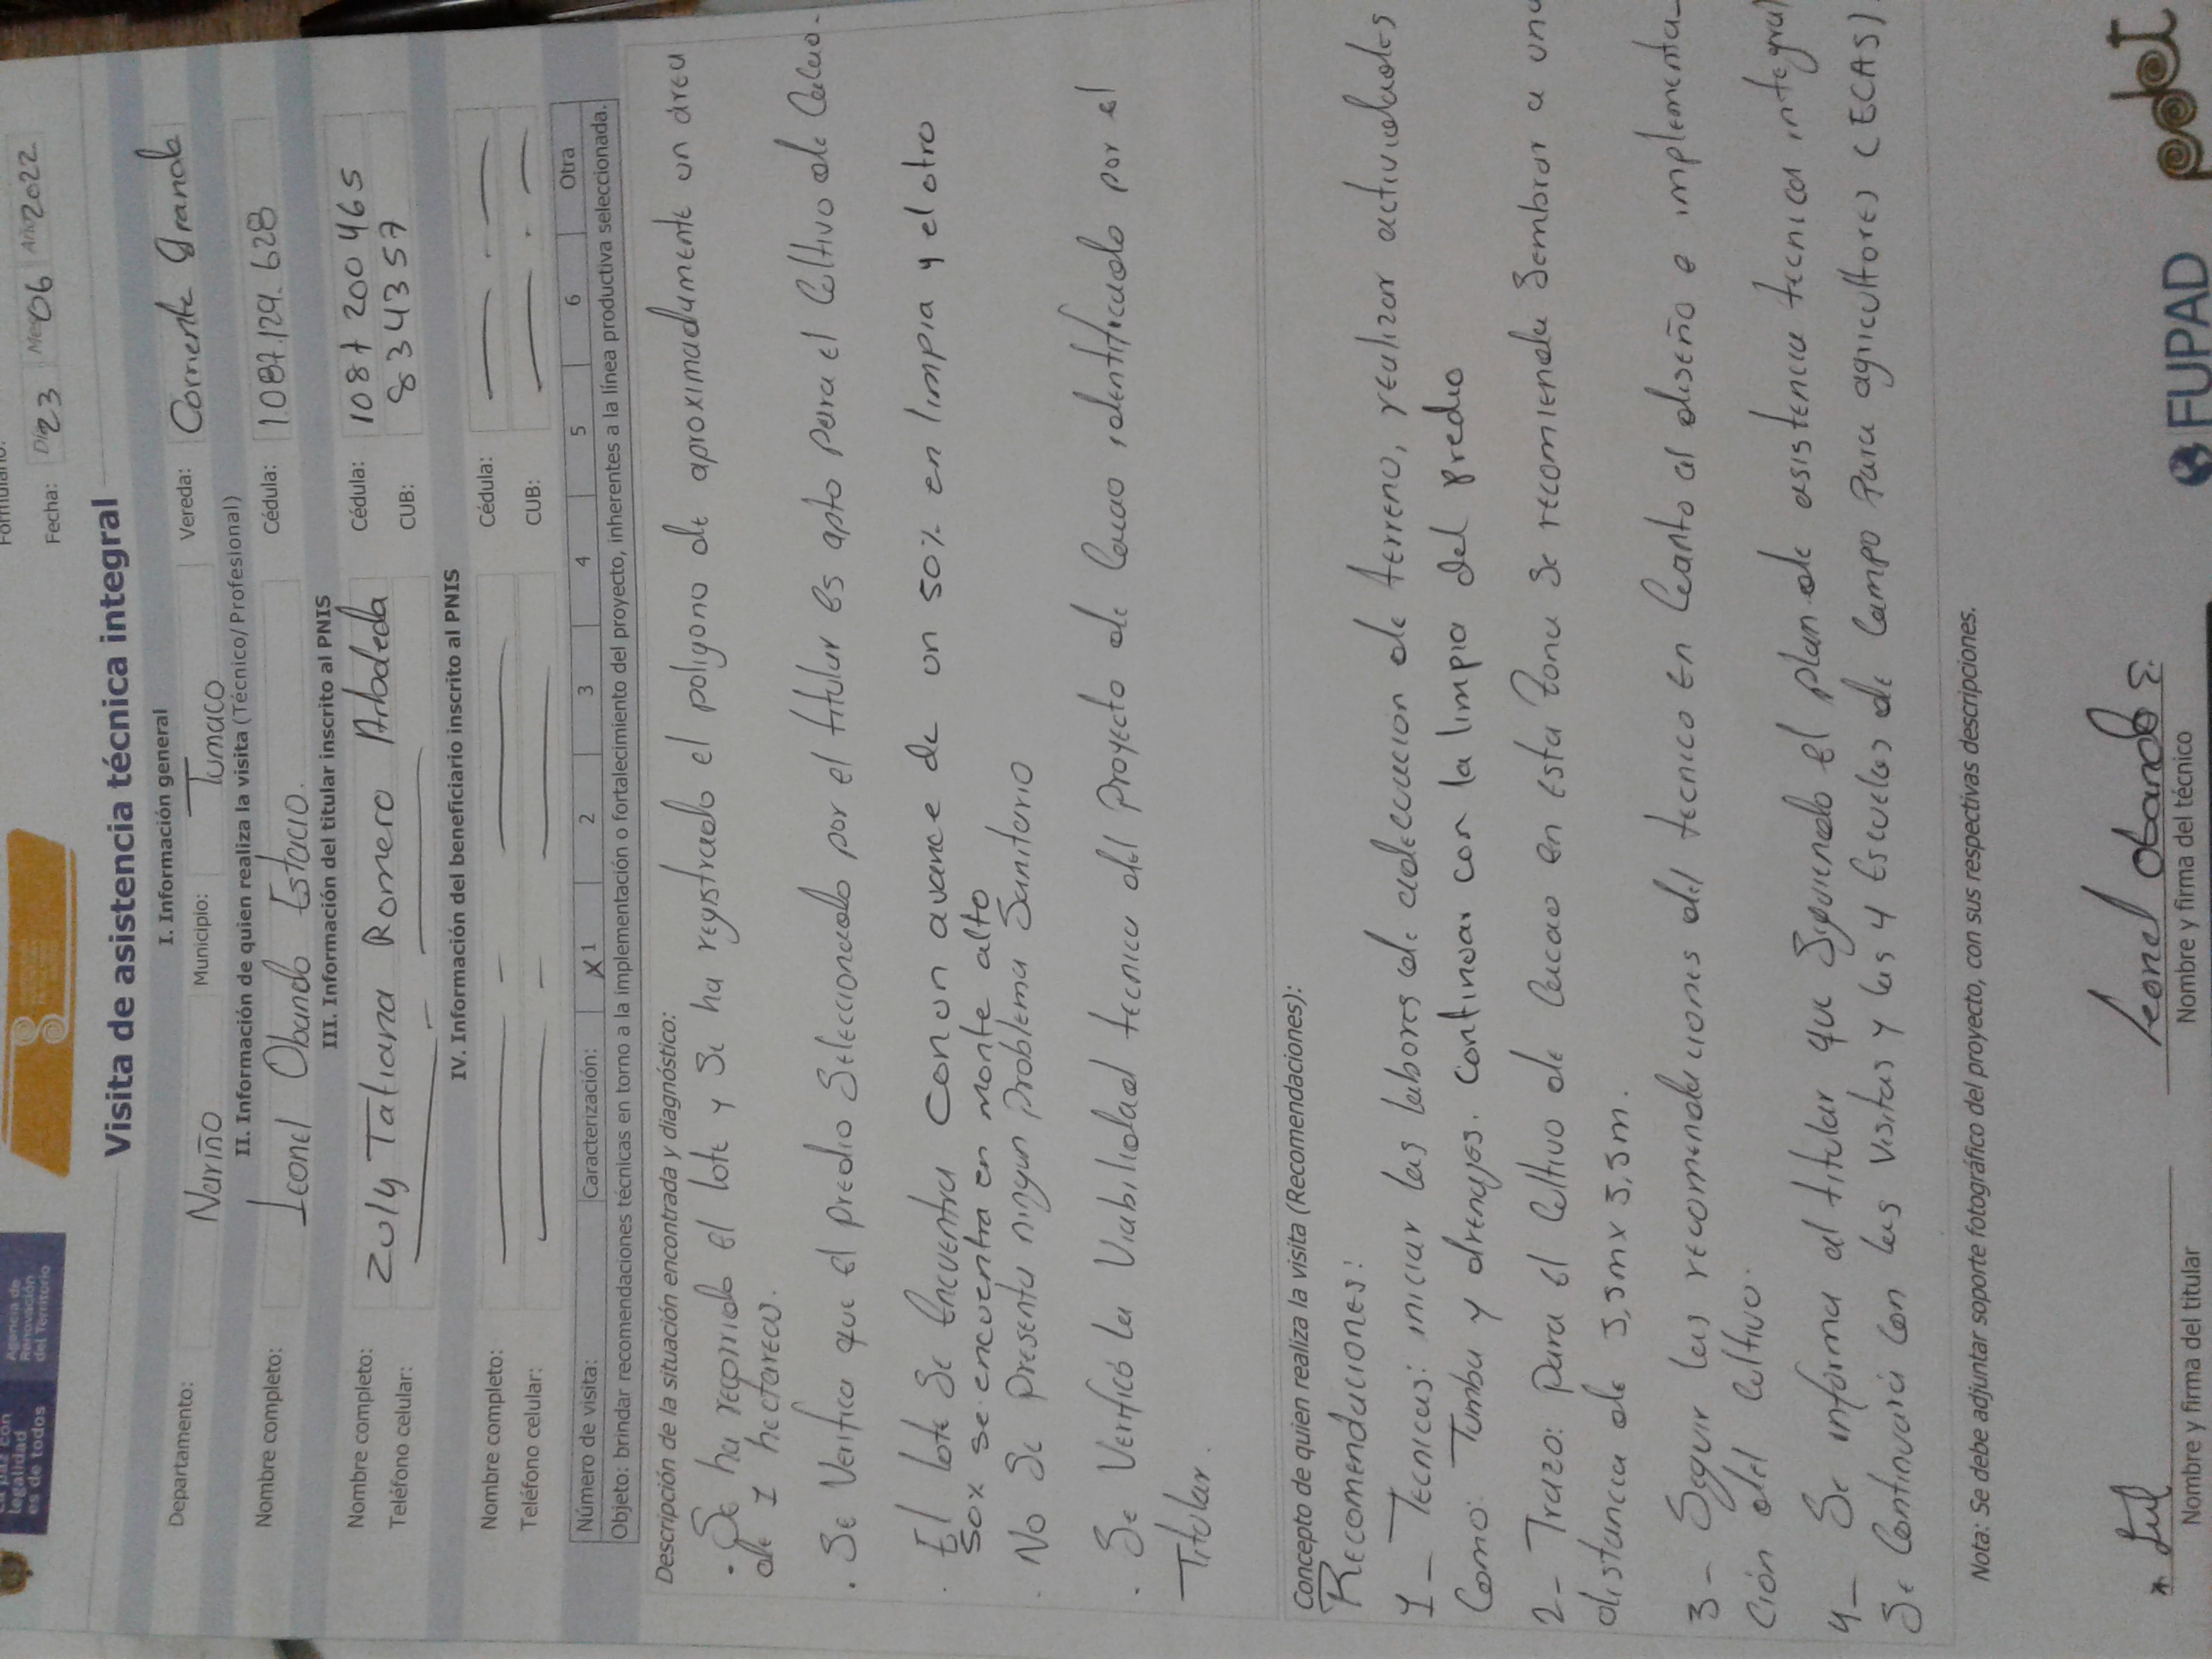 La paz con
legalidad
es de todos
Agencia de
Renovación
del Territorio
Fecha: Día 23 Mes 06 Año 2022
Visita de asistencia técnica integral
I. Información general
Departamento: Nariño Municipio: Tumaco Vereda: Corriente Grande
II. Información de quien realiza la visita (Técnico/Profesional)
Nombre completo: Leonel Obando Estacio. Cédula: 1.087.129.628
III. Información del titular inscrito al PNIS
Nombre completo: Zuly Tatiana Romero Arboleda Cédula: 1087 200 465
Teléfono celular: — - — CUB: 834357
IV. Información del beneficiario inscrito al PNIS
Nombre completo: — - — Cédula: — . —
Teléfono celular: — - — CUB: — . —
Número de visita: Caracterización: X 1 2 3 4 5 6 Otra
Objeto: brindar recomendaciones técnicas en torno a la implementación o fortalecimiento del proyecto, inherentes a la línea productiva seleccionada.
Descripción de la situación encontrada y diagnóstico:
. Se ha recorrido el lote y se ha registrado el poligono de aproximadamente un area
de 1 hectarea.
. Se Verifica que el predio seleccionado por el titular es apto para el cultivo de Cacao.
. El lote se encuentra con un avance de un 50% en limpia y el otro
50% se encuentra en monte alto
. No se presenta ningun problema Sanitario
. Se Verificó la Viabilidad tecnica del Proyecto de Cacao identificado por el
Titular.
Concepto de quien realiza la visita (Recomendaciones):
Recomendaciones:
1_ Tecnicas: iniciar las labores de adecuacion de terreno, realizar actividades
Como: Tumba y drenajes. continuar con la limpia del predio
2- Trazo: para el cultivo de cacao en esta zona se recomienda Sembrar a una
distancia de 3,5m x 3,5m.
3- Seguir las recomendaciones del tecnico en Cuanto al diseño e implementa-
ción del cultivo.
4_ Se informa al titular que siguiendo el plan de asistencia tecnica integral
Se Continuará con las visitas y las 4 Escuelas de Campo Para agricultores (ECAS).
Nota: Se debe adjuntar soporte fotográfico del proyecto, con sus respectivas descripciones.
Leonel Obando E.
Nombre y firma del titular
Nombre y firma del técnico
FUPAD
pdet